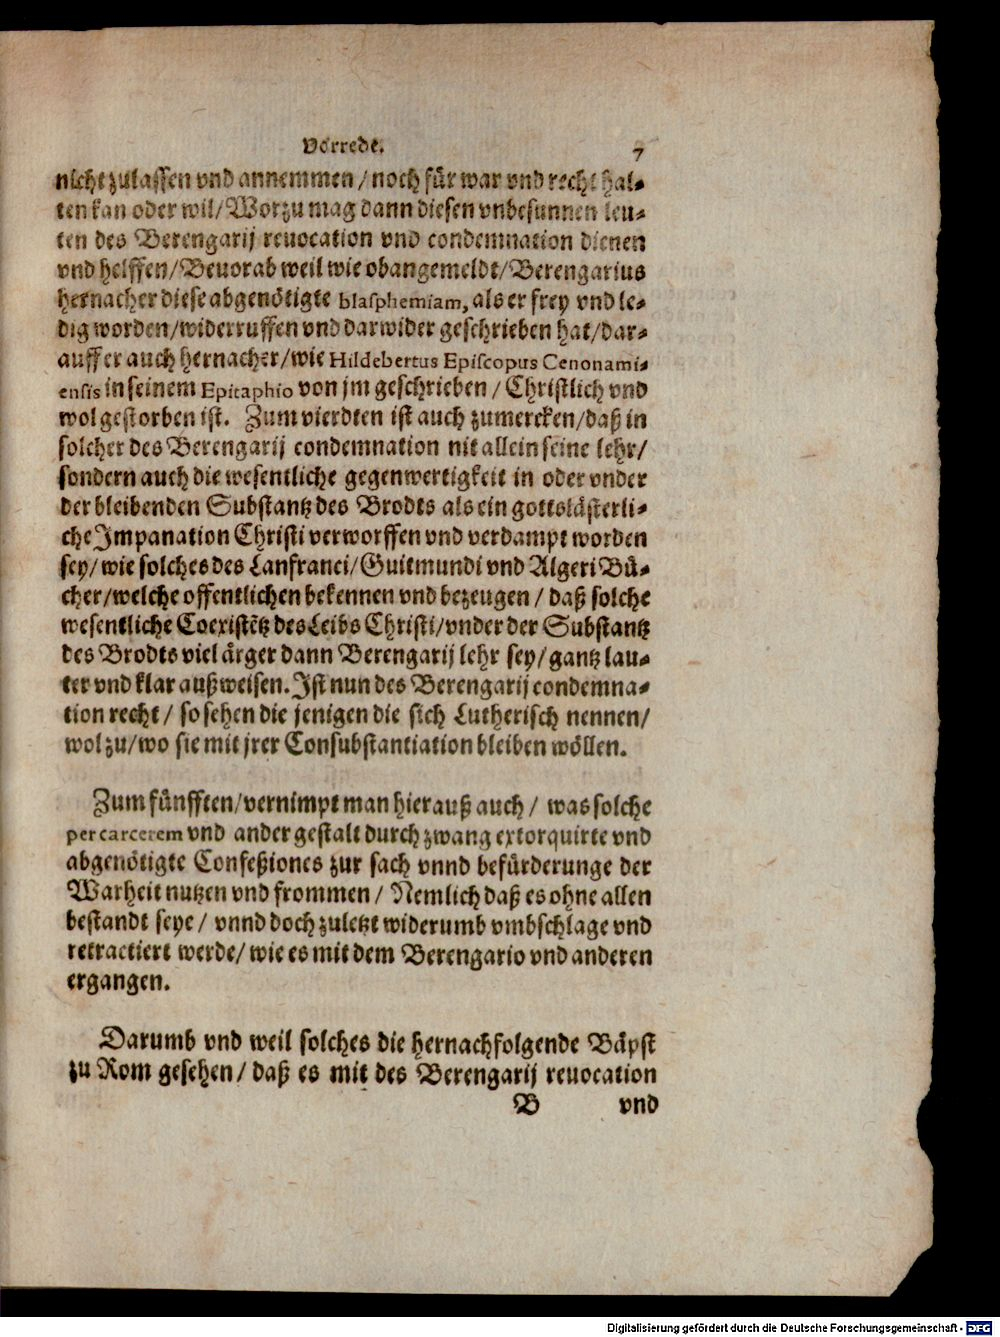 Vorrede. 7
nicht zulassen vnd annemmen / noch für war vnd recht hal-
ten kan oder wil/Worzu mag dann diesen vnbesunnen leu-
ten des Berengarij reuocation vnd condemnation dienen
vnd helffen/Beuorab weil wie obangemeldt/Berengarius
hernacher diese abgenötigte blasphemiam, als er frey vnd le-
dig worden/widerruffen vnd darwider geschrieben hat/dar-
auff er auch hernacher/wie Hildebertus Episcopus Cenonami-
ensis in seinem Epitaphio von jm geschrieben / Christlich vnd
wol gestorben ist. Zum vierdten ist auch zumercken/daß in
solcher des Berengarij condemnation nit allein seine lehr/
sondern auch die wesentliche gegenwertigkeit in oder vnder
der bleibenden Substantz des Brodts als ein gottslästerli-
che Impanation Christi verworffen vnd verdampt worden
sey/wie solches des Lanfranci/Guitmundi vnd Algeri Bü-
cher/welche offentlichen bekennen vnd bezeugen / daß solche
wesentliche Coexistẽtz des Leibs Christi/vnder der Substantz
des Brodts viel ärger dann Berengarij lehr sey/gantz lau-
ter vnd klar außweisen. Ist nun des Berengarij condemna-
tion recht / so sehen die jenigen die sich Lutherisch nennen/
wol zu/wo sie mit jrer Consubstantiation bleiben wöllen.
Zum fünfften/vernimpt man hierauß auch / was solche
per carcerem vnd ander gestalt durch zwang extorquirte vnd
abgenötigte Confeßiones zur sach vnnd befürderunge der
Warheit nutzen vnd frommen / Nemlich daß es ohne allen
bestandt seye / vnnd doch zuletzt widerumb vmbschlage vnd
retractiert werde/wie es mit dem Berengario vnd anderen
ergangen.
Darumb vnd weil solches die hernachfolgende Bäpst
zu Rom gesehen / daß es mit des Berengarij reuocation
B vnd
Digitalisierung gefördert durch die Deutsche Forschungsgemeinschaft - DFG